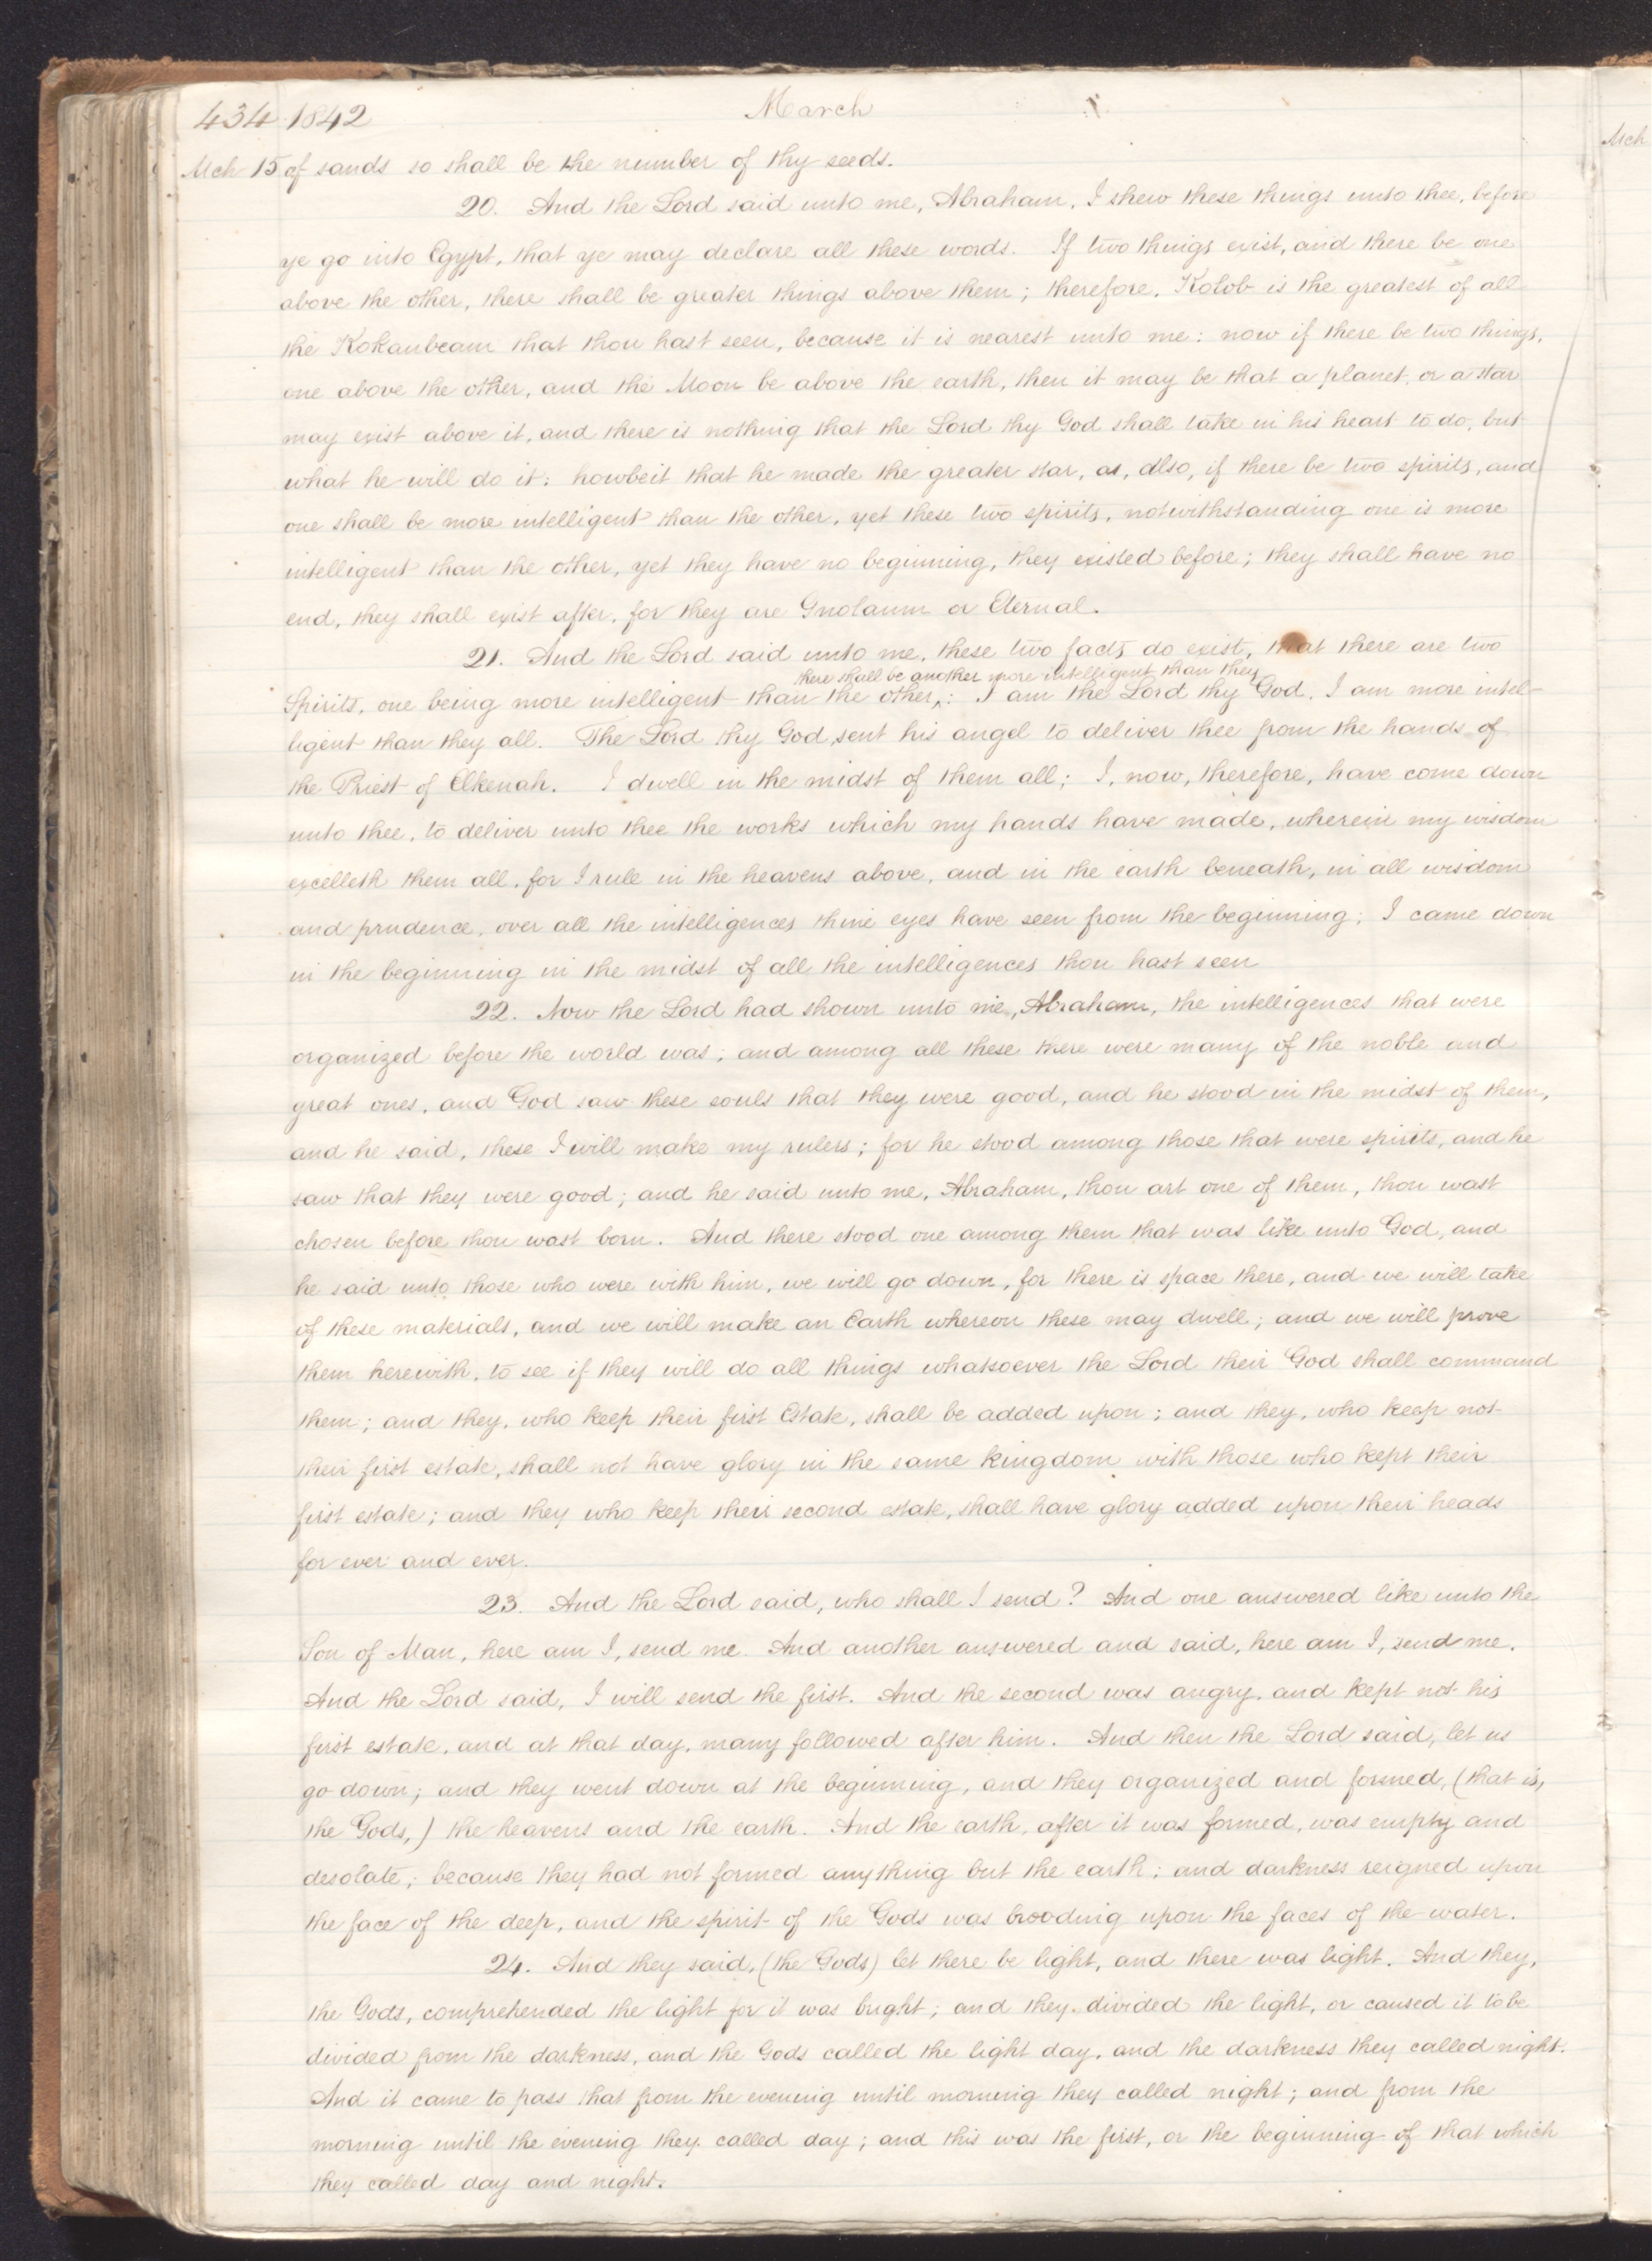 434 1842 March
Mch
Mch 15 of sands so shall be the number of thy seeds.
20. And the Lord said unto me, Abraham, I shew these things unto thee, before
ye go into Egypt, that ye may declare all these words. If two things exist, and there be one
above the other, there shall be greater things above them; therefore, Kolob is the greatest of all
the Kokaubeam that thou hast seen, because it is nearest unto me: now if there be two things,
one above the other, and the Moon be above the earth, then it may be that a planet, or a star
may exist above it, and there is nothing that the Lord thy God shall take in his heart to do, but
what he will do it: howbeit that he made the greater star, as, also, if there be two spirits, and
one shall be more intelligent than the other, yet these two spirits, notwithstanding one is more
intelligent than the other, yet they have no beginning, they existed before; they shall have no
end, they shall exist after, for they are Gnolaum or Eternal.
21. And the Lord said unto me, these two facts do exist, that there are two
there shall be another more intelligent than they
Spirits, one being more intelligent than the other,^: I am the Lord thy God. I am more intel-
ligent than they all. The Lord thy God, sent his angel to deliver thee from the hands of
the Priest of Elkenah. I dwell in the midst of them all; I, now, therefore, have come down
unto thee, to deliver unto thee the works which my hands have made, wherein my wisdom
excelleth them all, for I rule in the heavens above, and in the earth beneath, in all wisdom
and prudence, over all the intelligences thine eyes have seen from the beginning; I came down
in the beginning in the midst of all the intelligences thou hast seen
22. Now the Lord had shown unto me, Abraham, the intelligences that were
organized before the world was; and among all these there were many of the noble and
great ones, and God saw these souls that they were good, and he stood in the midst of them,
and he said, these I will make my rulers; for he stood among those that were spirits, and he
saw that they were good; and he said unto me, Abraham, thou art one of them, thou wast
chosen before thou wast born. And there stood one among them that was like unto God, and
he said unto those who were with him, we will go down, for there is space there, and we will take
of these materials, and we will make an Earth whereon these may dwell; and we will prove
them herewith, to see if they will do all things whatsoever the Lord their God shall command
them; and they, who keep their first Estate, shall be added upon; and they, who keep not
their first estate, shall not have glory in the same kingdom with those who kept their
first estate; and they who keep their second estate, shall have glory added upon their heads
for ever and ever.
23. And the Lord said, who shall I send? And one answered like unto the
Son of Man, here am I, send me. And another answered and said, here am I, send me.
And the Lord said, I will send the first. And the second was angry, and kept not his
first estate, and at that day, many followed after him. And then the Lord said, let us
go down; and they went down at the beginning, and they organized and formed, (that is,
the Gods,) the heavens and the earth. And the earth, after it was formed, was empty and
desolate; because they had not formed anything but the earth; and darkness reigned upon
the face of the deep, and the spirit of the Gods was brooding upon the faces of the water.
24. And they said, (the Gods) let there be light, and there was light. And they,
the Gods, comprehended the light for it was bright; and they divided the light, or caused it to be
divided from the darkness, and the Gods called the light day, and the darkness they called night.
And it came to pass that from the evening until morning they called night; and from the
morning until the evening they called day; and this was the first, or the beginning of that which
they called day and night.